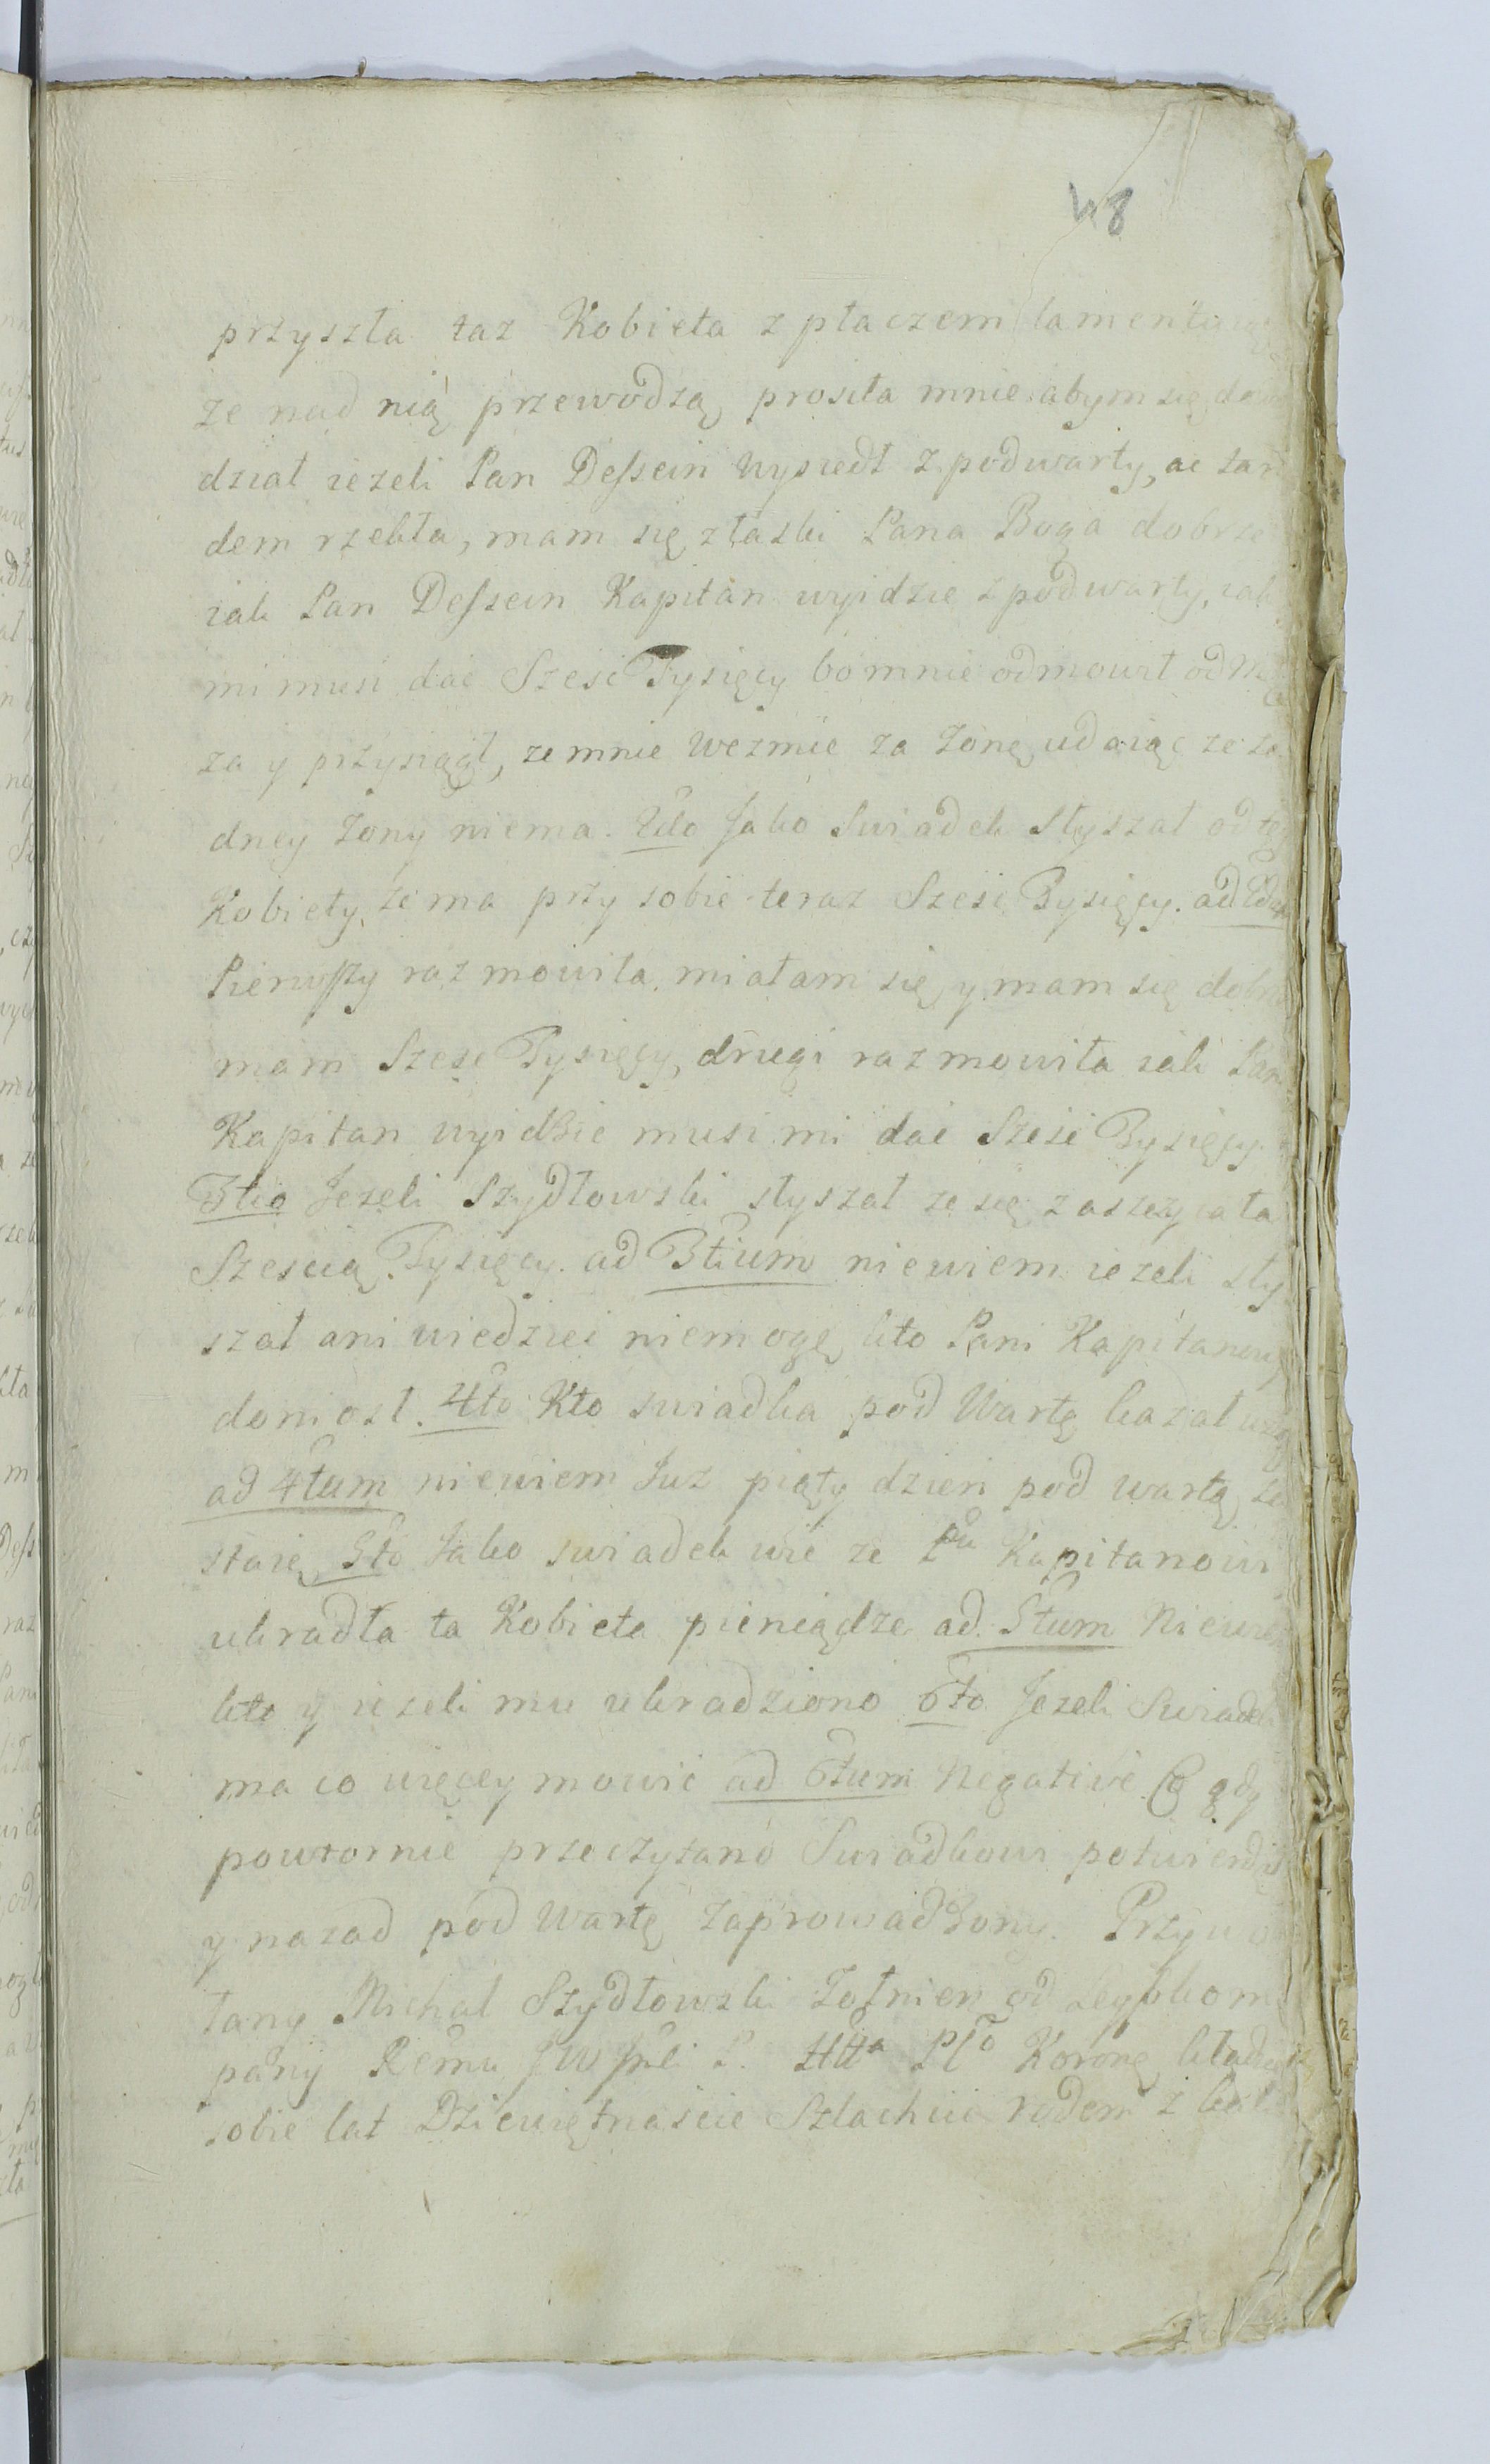 48
przyszła taz Kobieta z płaczem lamentuiąc
ze nad nią przewodzą, prosiła mnie abym się dowie
dział iezeli Pan Dessein wysiedł z pod warty, ae tan
dem rzekła, mam się z łaski Pana Boga dobrze
iak Pan Dessein Kapitan wyidzie z pod warty, iak
mi musi dać Szesć Tysięcy bo mnie odmowił od Mę
za y przysiągł, ze mnie wezmie za Zonę, udaiąc ze za
dney Zony niema. 2do Jako Swiadek Słyszał od tey
Kobiety, ze ma przy sobie teraz Szesć Tysięcy. ad 2dum
Pierwszy raz mowiła, miałam się, y mam się dobrze
mam Szesć Tysięcy, drugi raz mowiła iak Pan
Kapitan wyidzie musi mi dać Szesć Tysięcy
3tio Jezeli Szydłowski słyszał ze się zaszczycała
Szescią Tysięcy. ad 3tium niewiem iezeli sły
szał ani wiedzieć niemogę, kto Pani Kapitanowy
doniosł. 4to Kto swiadka pod Wartę kazał wziąć
ad 4tum niewiem Juz piąty dzien pod wartą zo
staię, 5to Jako swiadek wie ze Pu Kapitanowi
ukradła ta Kobieta pieniądze ad. 5tum Niewiem
kto y iezeli mu ukradziono 6to Jezeli Swiadek
ma co więcey mowić ad 6tum Negativè. Co gdy
powtornie przeczytano Swiadkowi potwierdził
y nazad pod Wartę zaprowadzony. Przywo
łany Michał Szydłowski Zołnierz od Leyb kom
pany Remu JW P. Korone kładący
sobie lat Dziewiętnascie Szlachcic rodem z